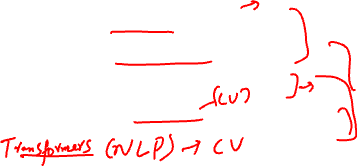 (CV)
Transformers (NLP) → CV